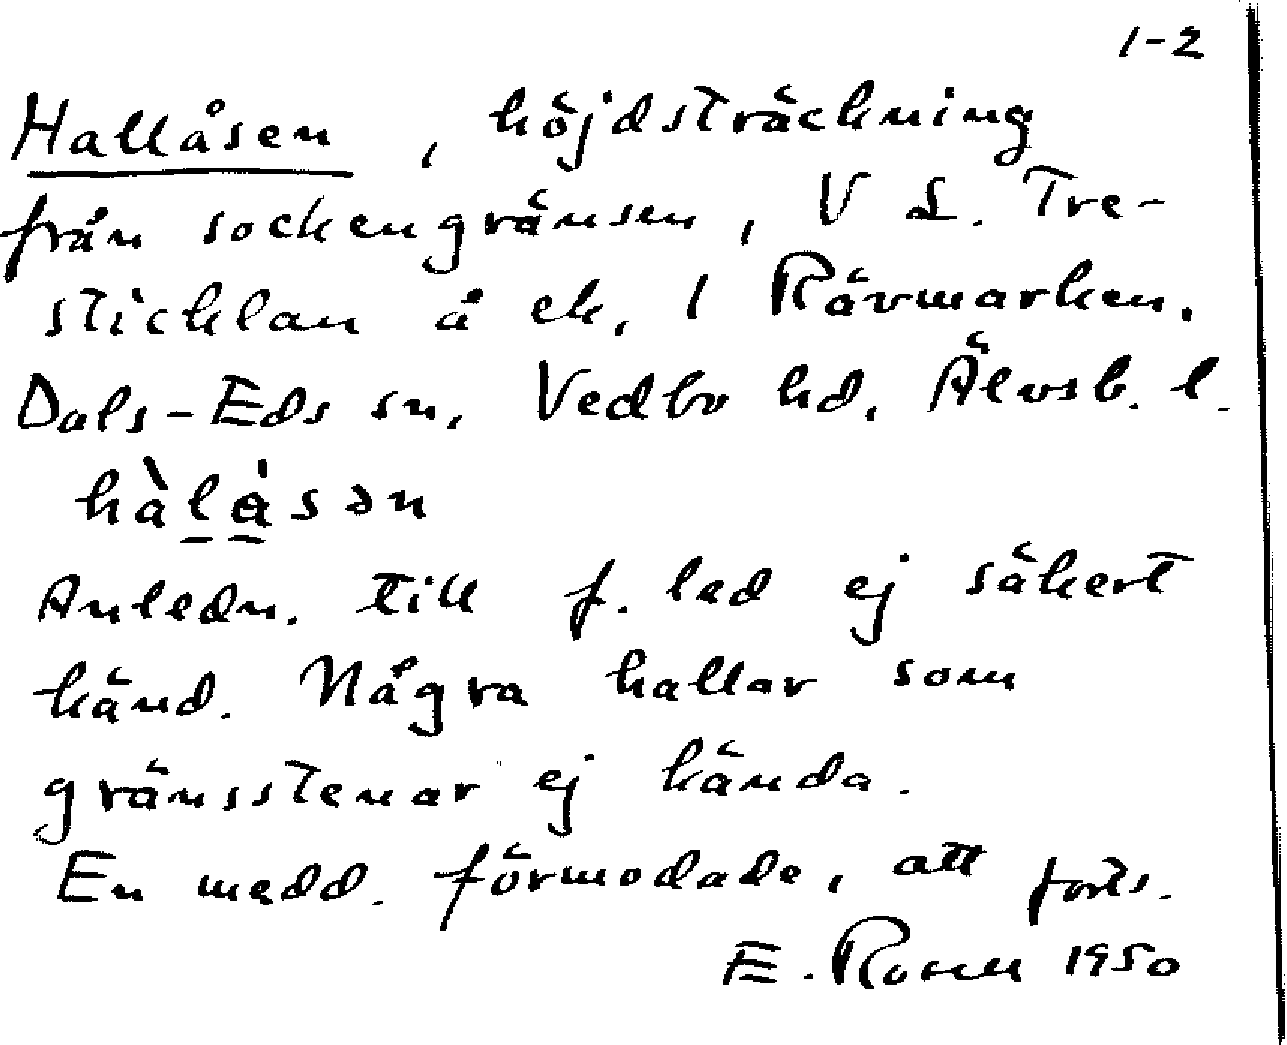 1-2
Hallåsen, höjdsträckning
från sockengränsen, V L. Tre-
sticklan å ek, 1 Rävmarken.
Dals-Eds sn, Vedbo hd, Älvsb. l.
hàlåsən
Anledn. till f. led ej säkert
känd. Några hallar som
gränsstenar ej kända.
En medd. förmodade, att forts.
E. Rosell 1950